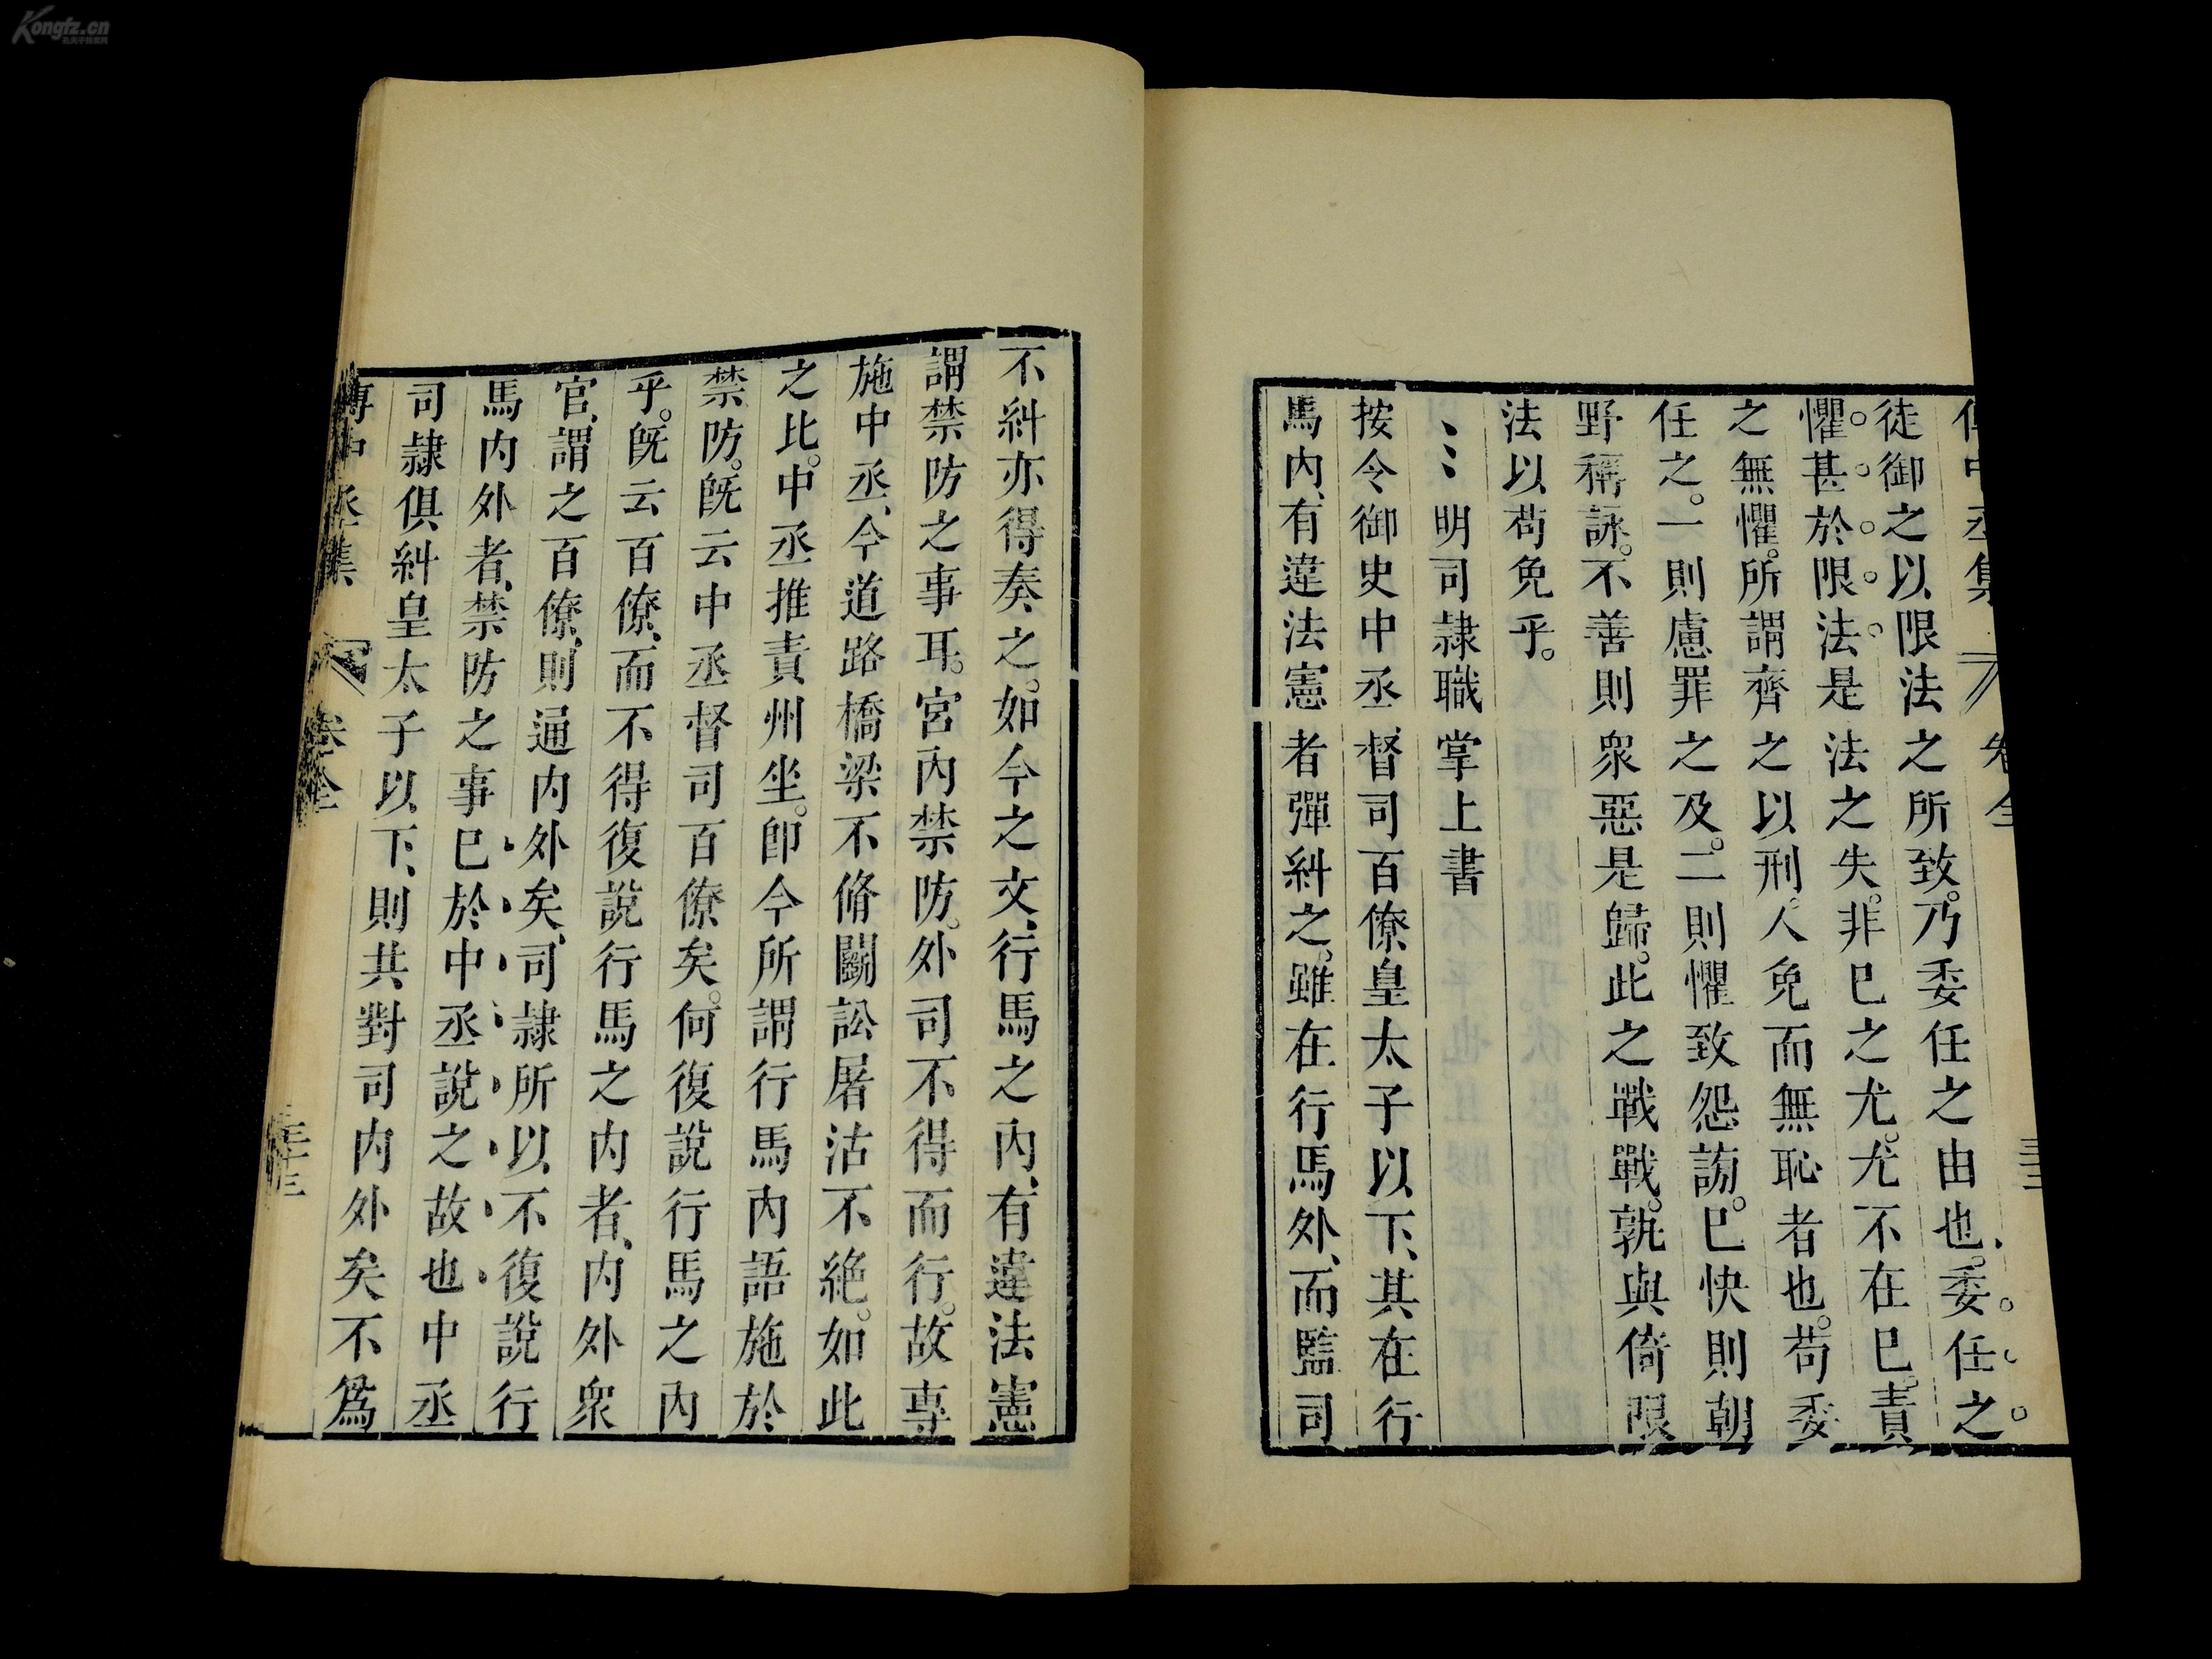 Kongfz.cn
孔夫子旧书网
傅中丞集 卷全
徒御之以限法之所致。乃委任之由也。委任之
懼甚於限法。是法之失。非已之尤。尤不在已。責
之無懼。所謂齊之以刑。人免而無恥者也。苟委
任之。一則慮罪之及。二則懼致怨謗。已快則朝
野稱詠。不善則衆惡是歸。此之戰戰。孰與倚限
法以苟免乎。
明司隸職掌上書
按令御史中丞、督司百僚皇太子以下、其在行
馬內、有違法憲者彈糾之。雖在行馬外、而監司
不糾亦得奏之。如今之文、行馬之內、有違法憲
謂禁防之事耳。宮內禁防。外司不得而行。故專
施中丞、今道路橋梁不脩鬭訟屠沽不絶。如此
之比。中丞推責州坐。卽今所謂行馬內語施於
禁防。旣云中丞督司百僚矣。何復說行馬之內
乎。旣云百僚、而不得復說行馬之內者、內外衆
官、謂之百僚、則通內外矣、司隸所以不復說行
馬內外者、禁防之事已於中丞說之故也中丞
司隸俱糾皇太子以下、則共對司內外矣不爲
傅中丞集 卷全